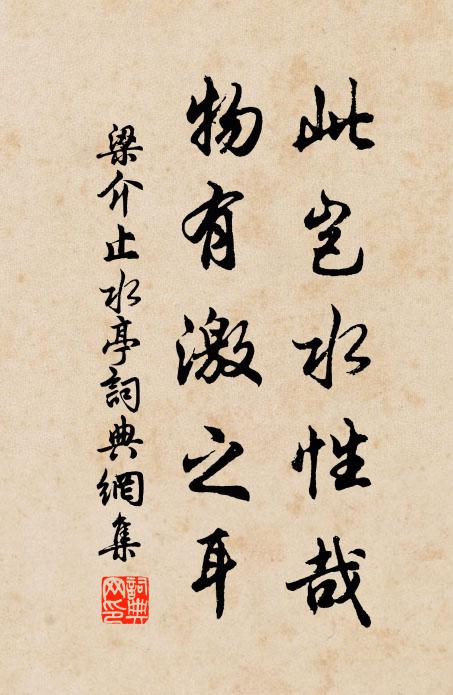 此岂水性哉
物有激之耳
梁介止水亭詞典網集
詞典
网印